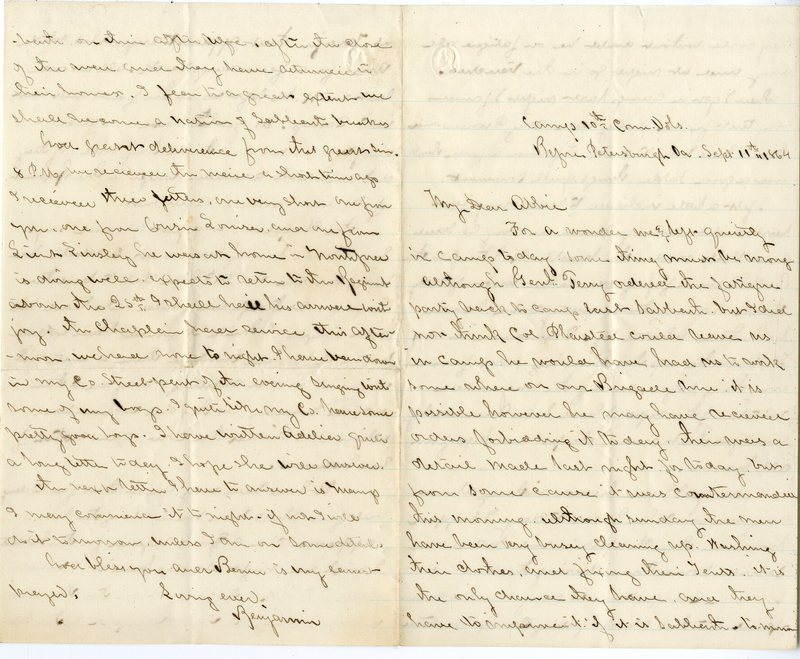 Camp 10th Conn. Vols.
Before Petersburgh Va. Sept 11th 1864
My Dear Abbie
For a wonder we are left quietly
in camp today some thing must be wrong
although Genl. Terry ordered the fatigue
party back to camp last Sabbath. but I did
not think Col Plaisted could leave us
in camp. he would have had us to work
some where on our Brigade line it is
possible however he may have received
orders forbidding it to day. their was a
detail made last night for today but
from some cause it was countermanded
this morning. although sunday the men
have been very busy cleaning up. Washing
their clothes, and fixing their Tents. it is
the only chance they have and they
have to improve it if it is Sabbath. to
on their after life. after the close
of the war and they have returned to
their homes. I fear to a great extent we
shall become a nation of Sabbath breakers
God grant deliverence from this great sin.
8 P.M. we received the mail a short time ago
I received three letters, one very short one from
you. one from Cousin Louisa. and one from
Lieut Linsley he was at home in Northford
is doing well. expects to return to the Regiment
about the 25th. I shall hail his arrival with
joy. The Chaplain had service this after-
-noon. we had none to night. I have been down
in my Co. Street part of the evening singing with
some of my boys. I quite like my Co. have some
pretty good boys. I have written Adelia quite
a long letter to day. I hope she will answer.
The next letter I have to answer is Marys
I may commence it to night. if not I will
do it tomorrow, unless I am on some detail
God bless you and Benn is my earnest
prayer. Loving ever
Benjamin